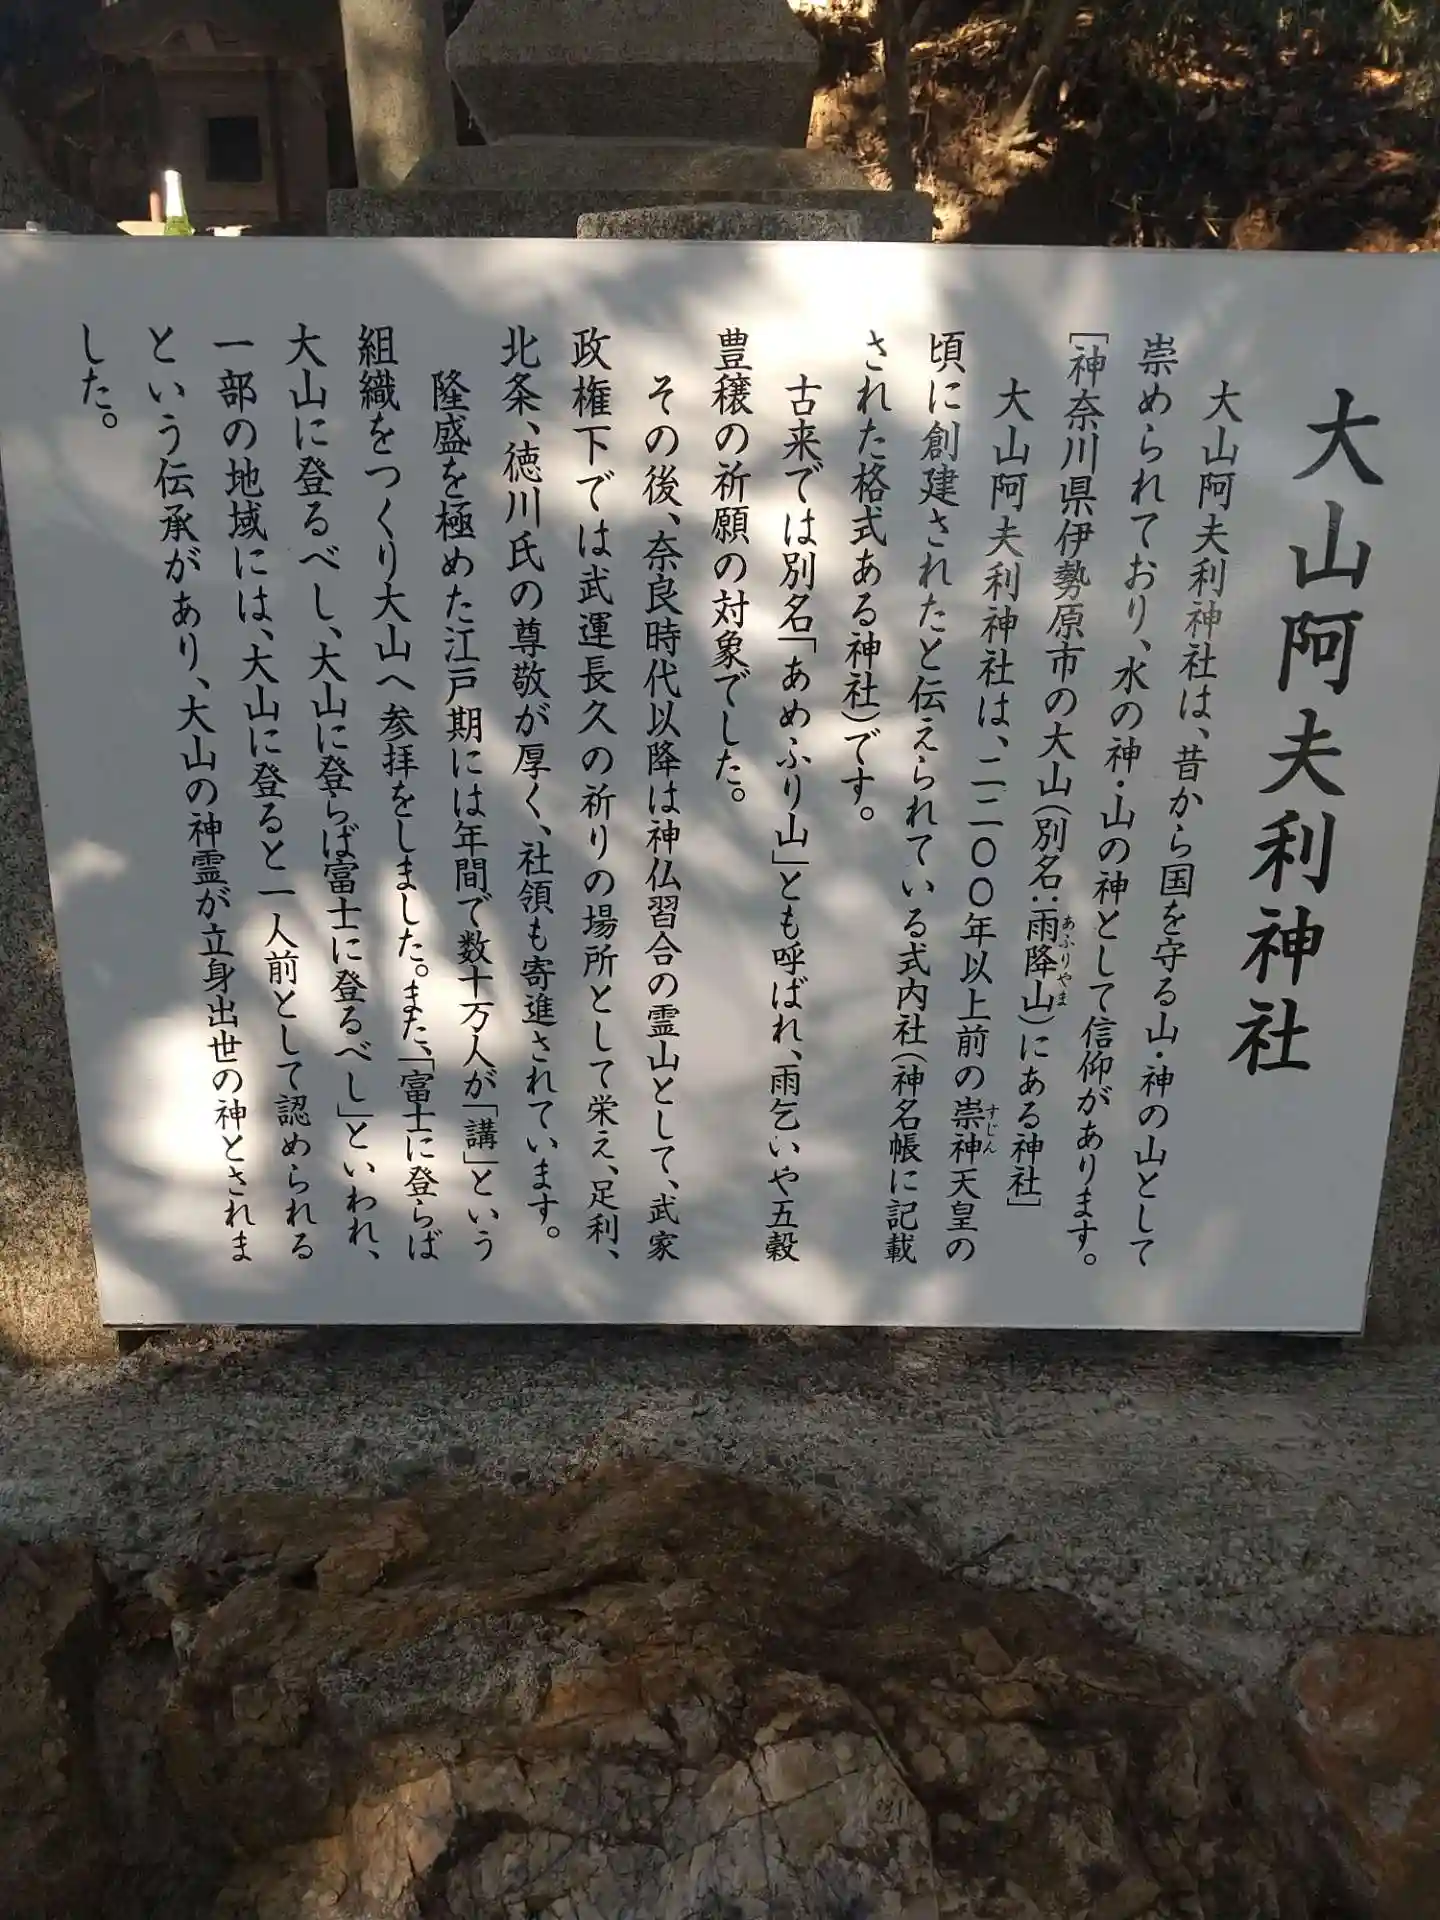 大山阿夫利神社
大山阿夫利神社は、昔から国を守る山・神の山として
崇められており、水の神・山の神として信仰があります。
[神奈川県伊勢原市の大山(別名:雨降山)にある神社]
あふりやま
大山阿夫利神社は、二二〇〇年以上前の崇神天皇の
すじん
頃に創建されたと伝えられている式内社(神名帳に記載
された格式ある神社)です。
古来では別名「あめふり山」とも呼ばれ、雨乞いや五穀
豊穣の祈願の対象でした。
その後、奈良時代以降は神仏習合の霊山として、武家
政権下では武運長久の祈りの場所として栄え、足利、
北条、徳川氏の尊敬が厚く、社領も寄進されています。
隆盛を極めた江戸期には年間で数十万人が「講」という
組織をつくり大山へ参拝をしました。また、「富士に登らば
大山に登るべし、大山に登らば富士に登るべし」といわれ、
一部の地域には、大山に登ると一人前として認められる
という伝承があり、大山の神霊が立身出世の神とされま
した。